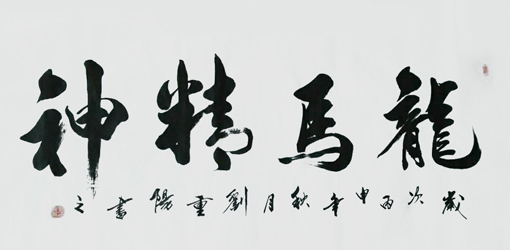 龍馬精神
歲次丙申年秋月劉重陽書之